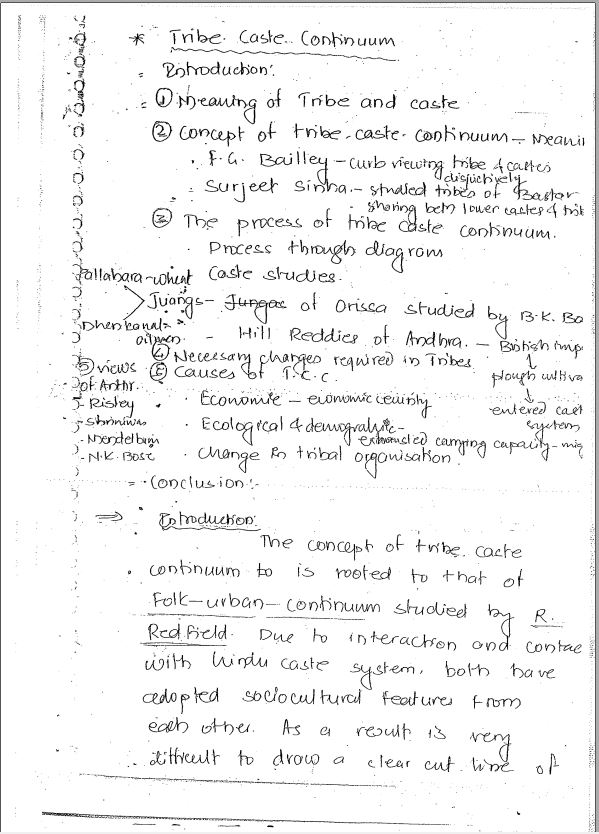 * Tribe Caste Continuum
- Introduction:
- ① Meaning of Tribe and caste
② Concept of tribe-caste-continuum - Meani
. F.G. Bailley - curb viewing tribe & castes
disjuctively
- Surjeet Sinha - studied tribes of Bastar
- sharing betn lower castes & trib
③ The process of tribe caste continuum.
. Process through diagram
Caste studies.
Pallahara - wheat
Juangs - of Orissa studied by B.K. Ba
Dhenkanal -
oilmen
- Hill Reddies of Andhra. - British imp
④ Necessary changes required in Tribes
plough cultiva
entered cast
system
⑤ Causes of T.C.C.
⑤ views
of Anthr.
- Risley
- Srinivas
- Mendelbam
- N.K. Bose
. Economic - economic security
. Ecological & demograhic -
exhausted carrying capacity - mig
. Change in tribal organisation.
- Conclusion:-
⇒ Introduction:
The concept of tribe caste
continuum to is rooted to that of
Folk-urban-continuum studied by R.
Redfield. Due to interaction and contac
with hindu caste system, both have
adopted sociocultural features from
each other. As a result is very
difficult to draw a clear cut line of